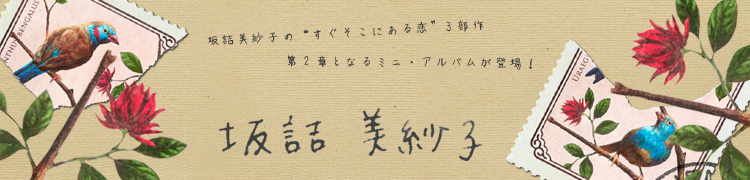 坂詰美紗子の“すぐそこにある恋”3部作
第2章となるミニ・アルバムが登場！
坂詰 美紗子